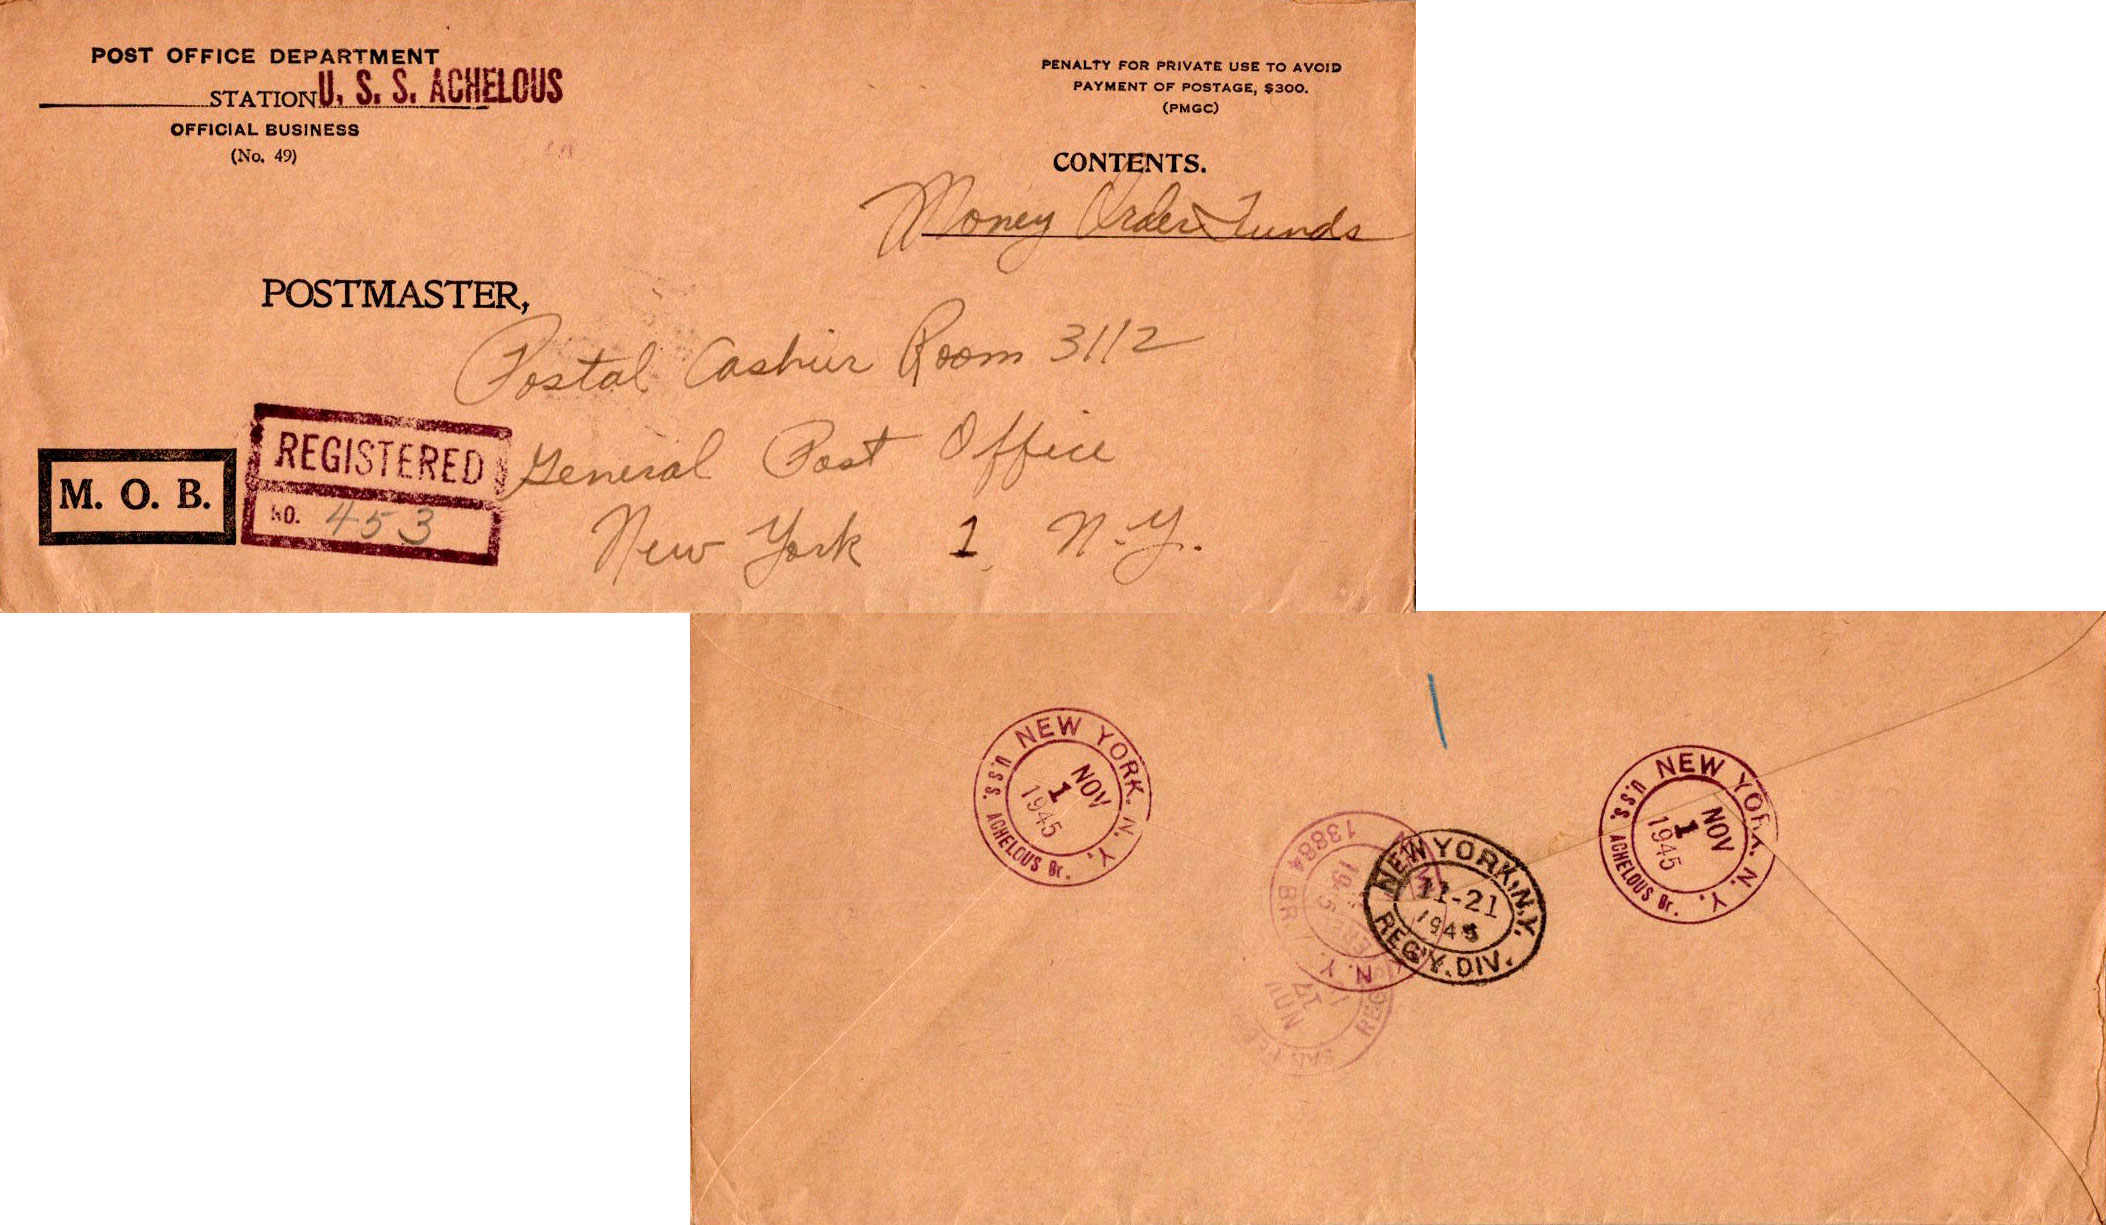 POST OFFICE DEPARTMENT
STATION U. S. S. ACHELOUS
OFFICIAL BUSINESS
(No. 49)
PENALTY FOR PRIVATE USE TO AVOID
PAYMENT OF POSTAGE, $300.
(PMGC)
CONTENTS.
Money Order Funds
POSTMASTER,
Postal Cashier Room 3112
General Post Office
New York 1 N.Y.
M. O. B.
REGISTERED
NO. 453
NEW YORK, N. Y.
NOV
1
1945
U.S.S. ACHELOUS Br.
13884 BR.
1945
N.Y.
NOV
17
NEW YORK, N.Y.
11-21
1945
REG'Y. DIV.
NEW YORK, N. Y.
NOV
1
1945
U.S.S. ACHELOUS Br.